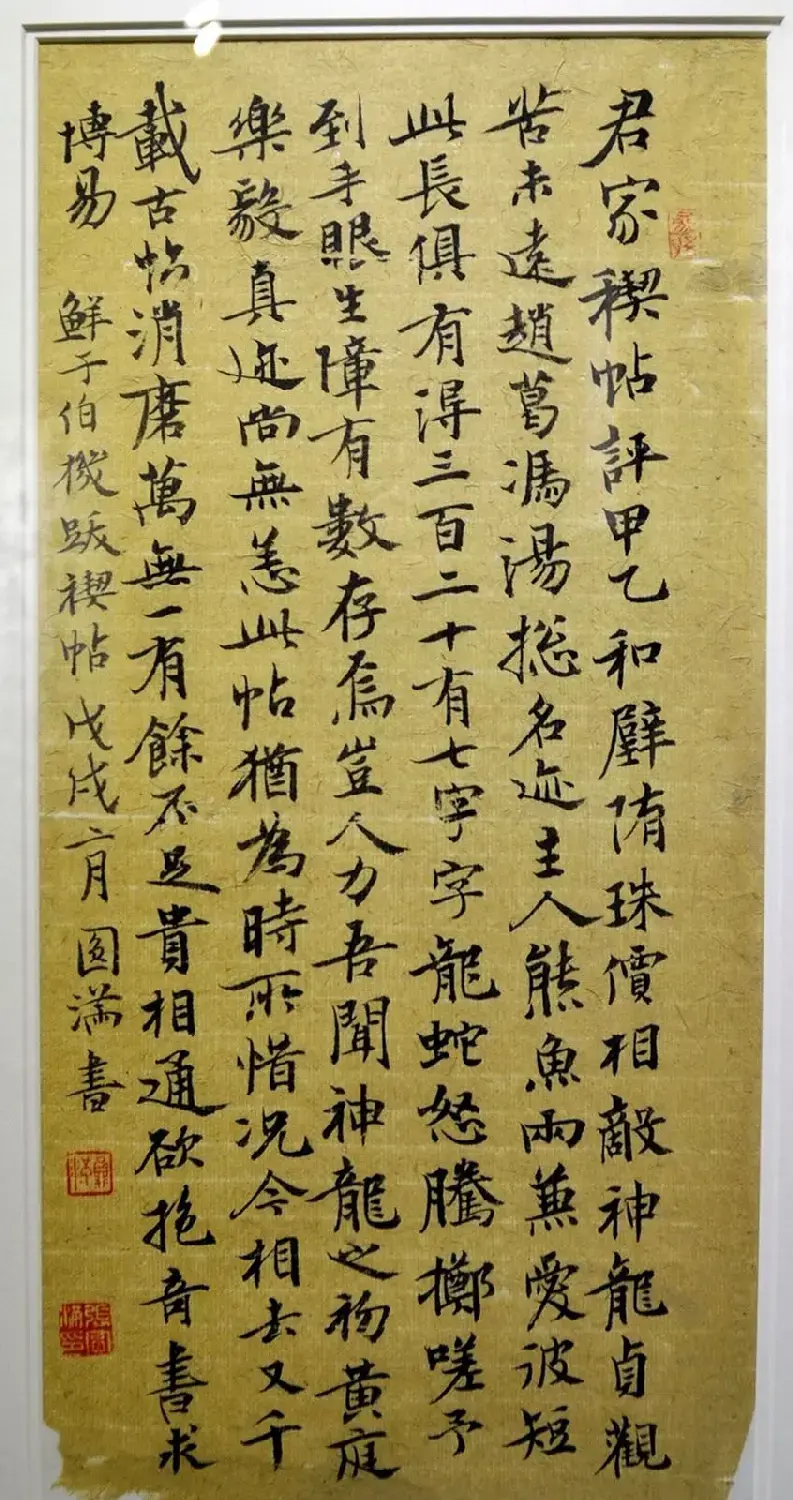 君家稧帖評甲乙和璧隋珠價相敵神龍貞觀
苦未遠趙葛馮湯揔名迹主人熊魚兩兼愛彼短
此長俱有得三百二十有七字字龍蛇怒騰擲嗟予
到手眼生障有數存焉豈人力吾聞神龍之初黃庭
樂毅真迹尚無恙此帖猶為時所惜況今相去又千
載古帖消磨萬無一有餘不足貴相通欲抱奇書求
博易 鮮于伯機跋稧帖戊戌六月圓滿書